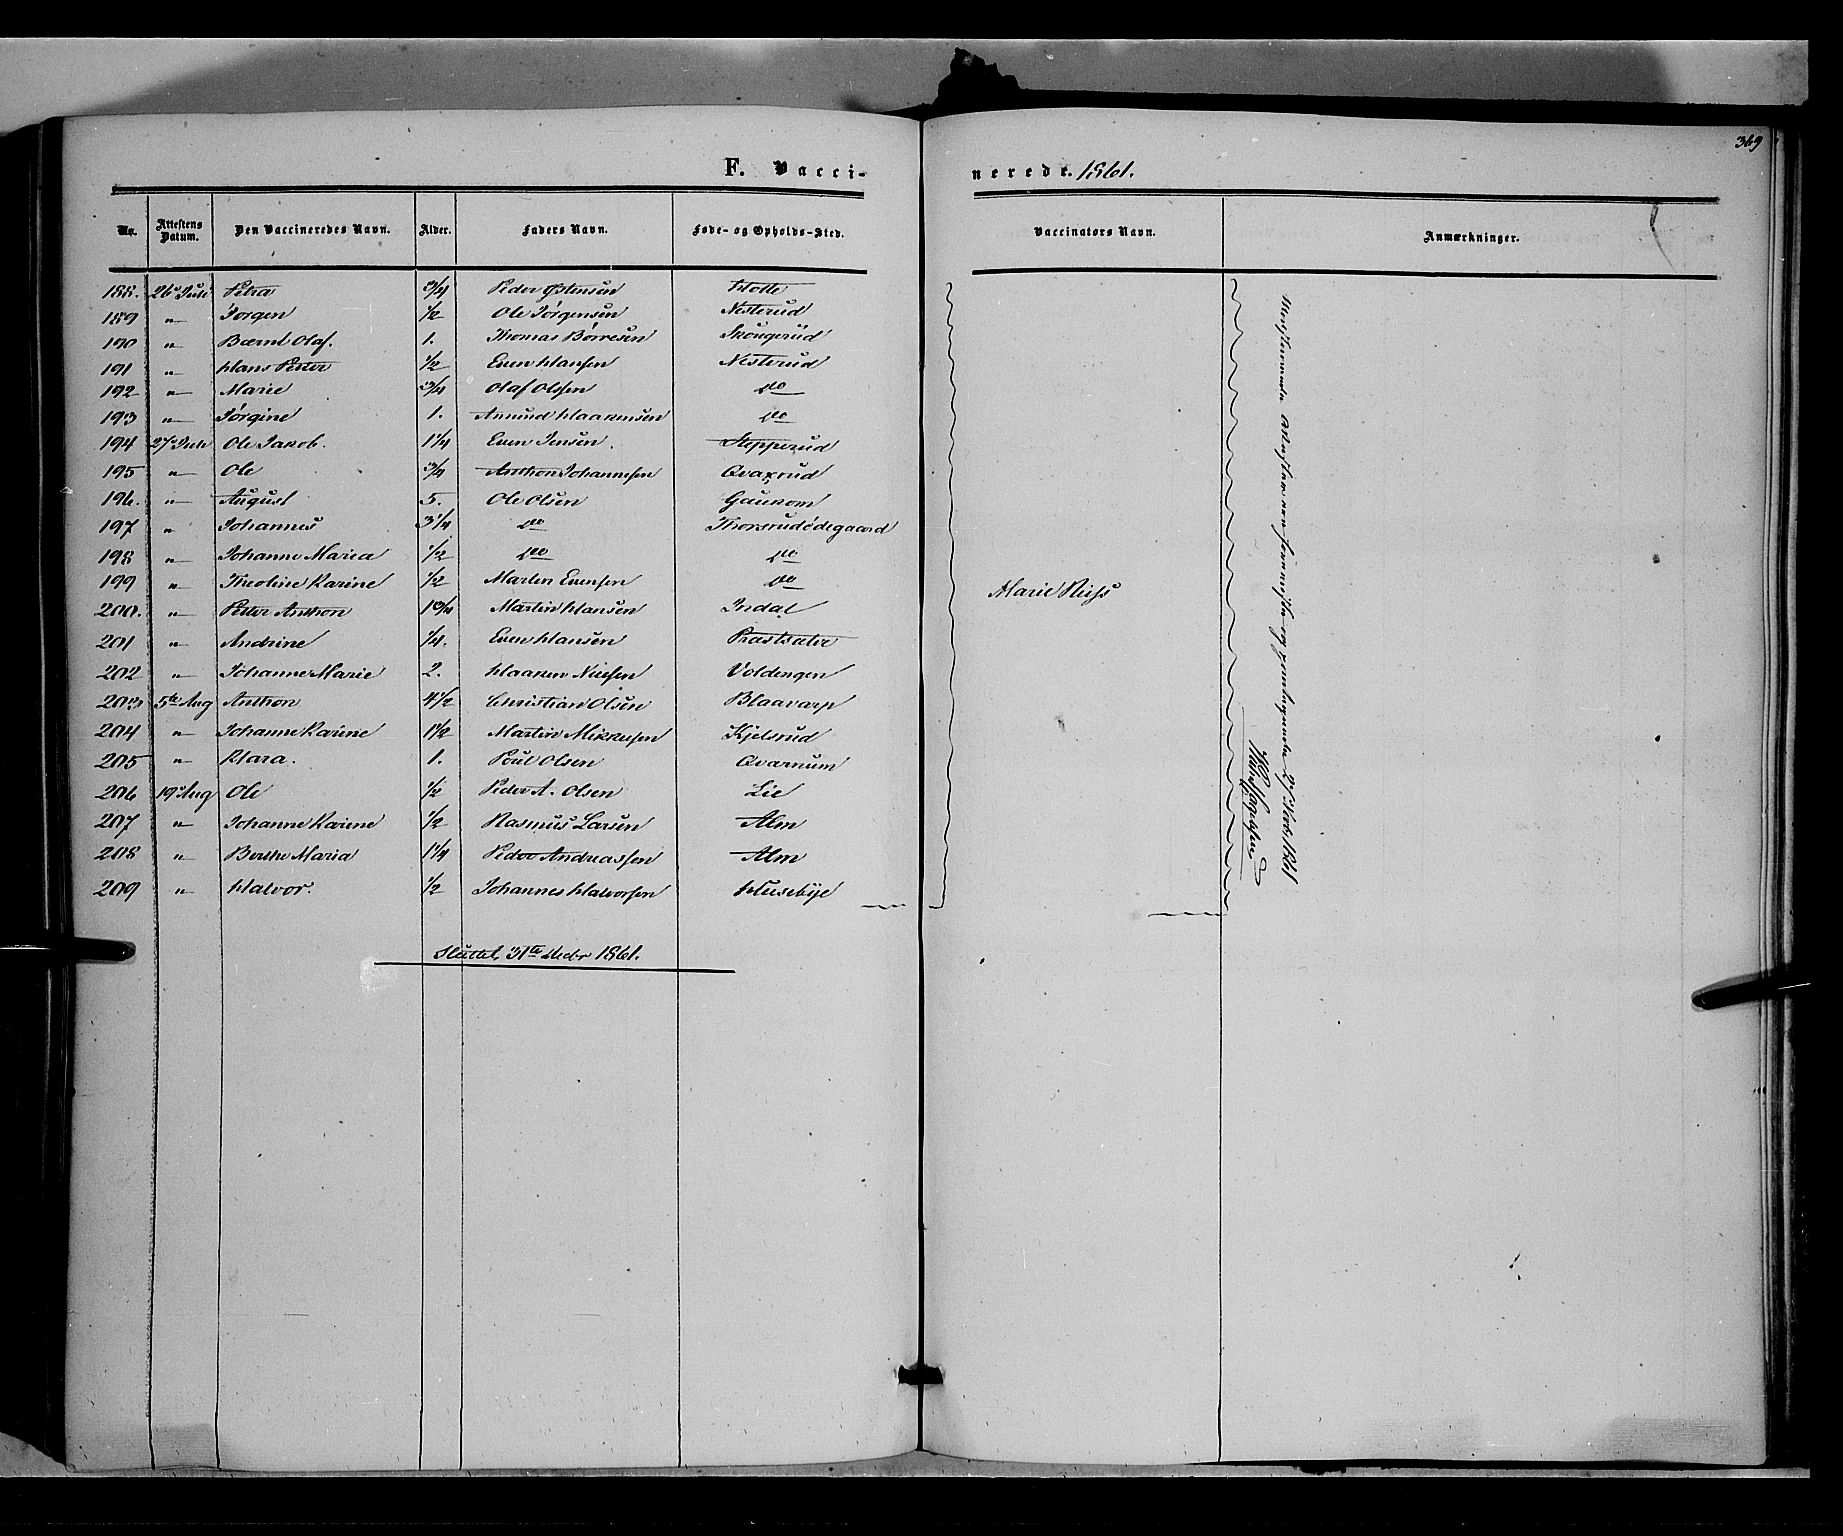 369
F. Vaccinerede. 1861.
Nr. Attestens Datum. Den Vaccineredes Navn. Alder. Faders Navn. Føde- og Opholds-Sted. Vaccinators Navn. Anmærkninger.
188. 26 Juli Petra 3/4 Peder Østensen
189 " Jørgen 1/2 Ole Jørgensen Nesterud
190 " Bernt Olaf. 1. Thomas Børresen Skougerud
191 " Hans Peter 1/2 Even Hansen Nesterud
192 " Marie 3/4 Olaf Olssen do
193 " Jørgine 1. Amund Haakensen do
194 27 Juli Ole Jakob. 1 1/4 Even Jensen Stepperud
195 " Ole 3/4 Anthon Johannesen
196. " August 5. Ole Olsen Gaukom
197 " Johannes 3 1/4 do Thorsrudødegaard
198 " Johanne Maria 1/2 do do
199 " Theoline Karine 1/2 Martin Evensen do
200. " Peter Anthon 1 Martin Hansen Indal
201 " Andrine 1/4. Even Hansen Præstsæter
202 " Johanne Marie 2. Haaken Nielsen Voldengen
203 5te Aug Anthon 4 1/2 Christian Olsen Blaavarp
204 " Johanne Karine 1 1/2 Martin Mikkelsen Kjelsrud
205 " Klara. 1. Poul Olsen Qvarnum
206 19 Aug Ole 1/2 Peder A. Olsen Lie
207 " Johanne Karine 1/2 Rasmus Larsen Alm
208 " Berthe Maria 1 1/4 Peder Andreassen Alm
209 " Halvor. 1/2 Johannes Halvorsen Husebye
Marie Niels
Sluttet 31te Decbr 1861.